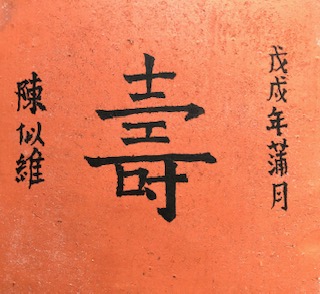 戊戌年蒲月
壽
陳似維